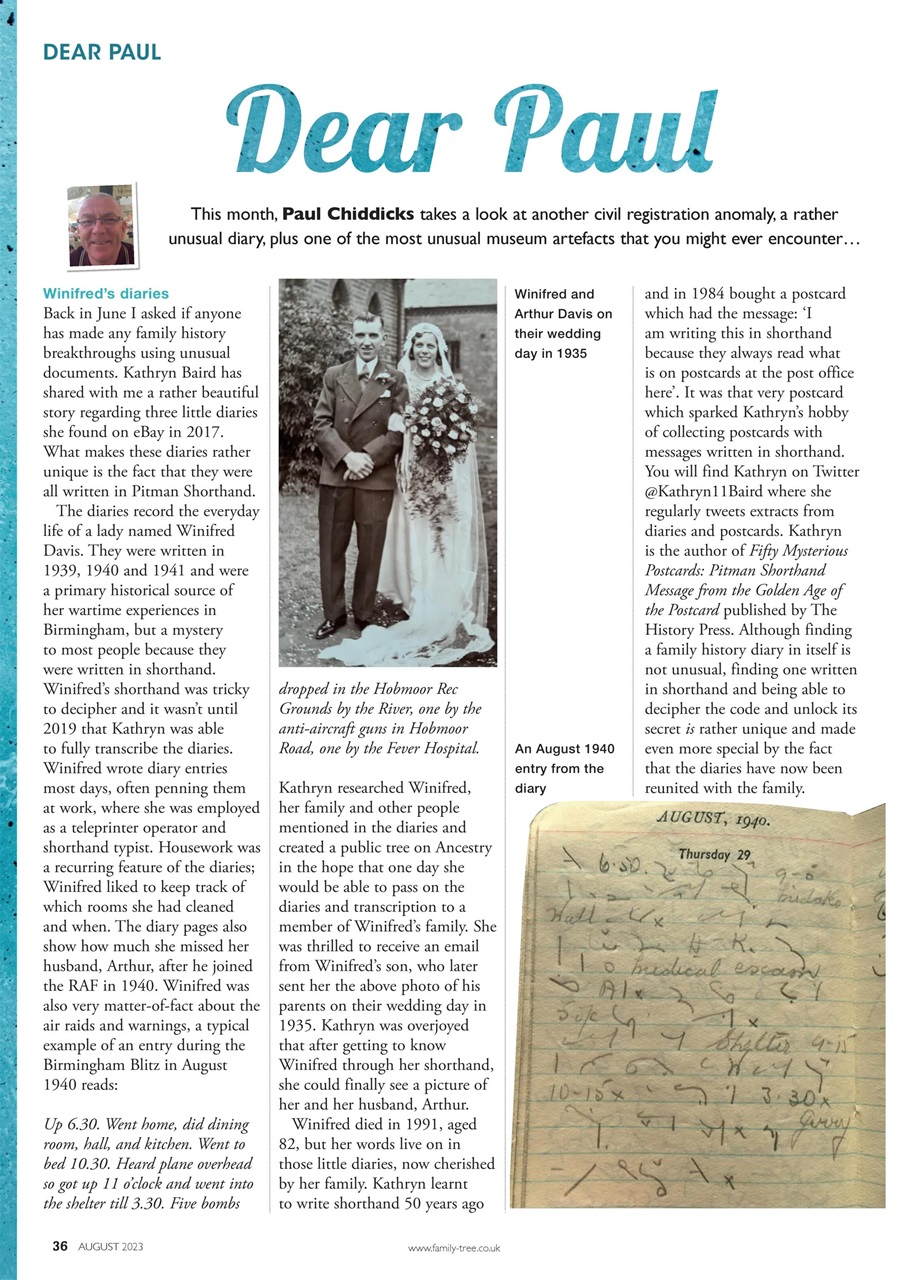 DEAR PAUL
Dear Paul
This month, Paul Chiddicks takes a look at another civil registration anomaly, a rather
unusual diary, plus one of the most unusual museum artefacts that you might ever encounter…
Winifred’s diaries
Back in June I asked if anyone
has made any family history
breakthroughs using unusual
documents. Kathryn Baird has
shared with me a rather beautiful
story regarding three little diaries
she found on eBay in 2017.
What makes these diaries rather
unique is the fact that they were
all written in Pitman Shorthand.
The diaries record the everyday
life of a lady named Winifred
Davis. They were written in
1939, 1940 and 1941 and were
a primary historical source of
her wartime experiences in
Birmingham, but a mystery
to most people because they
were written in shorthand.
Winifred’s shorthand was tricky
to decipher and it wasn’t until
2019 that Kathryn was able
to fully transcribe the diaries.
Winifred wrote diary entries
most days, often penning them
at work, where she was employed
as a teleprinter operator and
shorthand typist. Housework was
a recurring feature of the diaries;
Winifred liked to keep track of
which rooms she had cleaned
and when. The diary pages also
show how much she missed her
husband, Arthur, after he joined
the RAF in 1940. Winifred was
also very matter-of-fact about the
air raids and warnings, a typical
example of an entry during the
Birmingham Blitz in August
1940 reads:
Up 6.30. Went home, did dining
room, hall, and kitchen. Went to
bed 10.30. Heard plane overhead
so got up 11 o’clock and went into
the shelter till 3.30. Five bombs
dropped in the Hobmoor Rec
Grounds by the River, one by the
anti-aircraft guns in Hobmoor
Road, one by the Fever Hospital.
Kathryn researched Winifred,
her family and other people
mentioned in the diaries and
created a public tree on Ancestry
in the hope that one day she
would be able to pass on the
diaries and transcription to a
member of Winifred’s family. She
was thrilled to receive an email
from Winifred’s son, who later
sent her the above photo of his
parents on their wedding day in
1935. Kathryn was overjoyed
that after getting to know
Winifred through her shorthand,
she could finally see a picture of
her and her husband, Arthur.
Winifred died in 1991, aged
82, but her words live on in
those little diaries, now cherished
by her family. Kathryn learnt
to write shorthand 50 years ago
Winifred and
Arthur Davis on
their wedding
day in 1935
An August 1940
entry from the
diary
and in 1984 bought a postcard
which had the message: ‘I
am writing this in shorthand
because they always read what
is on postcards at the post office
here’. It was that very postcard
which sparked Kathryn’s hobby
of collecting postcards with
messages written in shorthand.
You will find Kathryn on Twitter
@Kathryn11Baird where she
regularly tweets extracts from
diaries and postcards. Kathryn
is the author of Fifty Mysterious
Postcards: Pitman Shorthand
Message from the Golden Age of
the Postcard published by The
History Press. Although finding
a family history diary in itself is
not unusual, finding one written
in shorthand and being able to
decipher the code and unlock its
secret is rather unique and made
even more special by the fact
that the diaries have now been
reunited with the family.
AUGUST, 1940.
Thursday 29
6.30.
H. K.
medical exam
A1
Shelter 9-15
10-15
3.30
36 AUGUST 2023
www.family-tree.co.uk